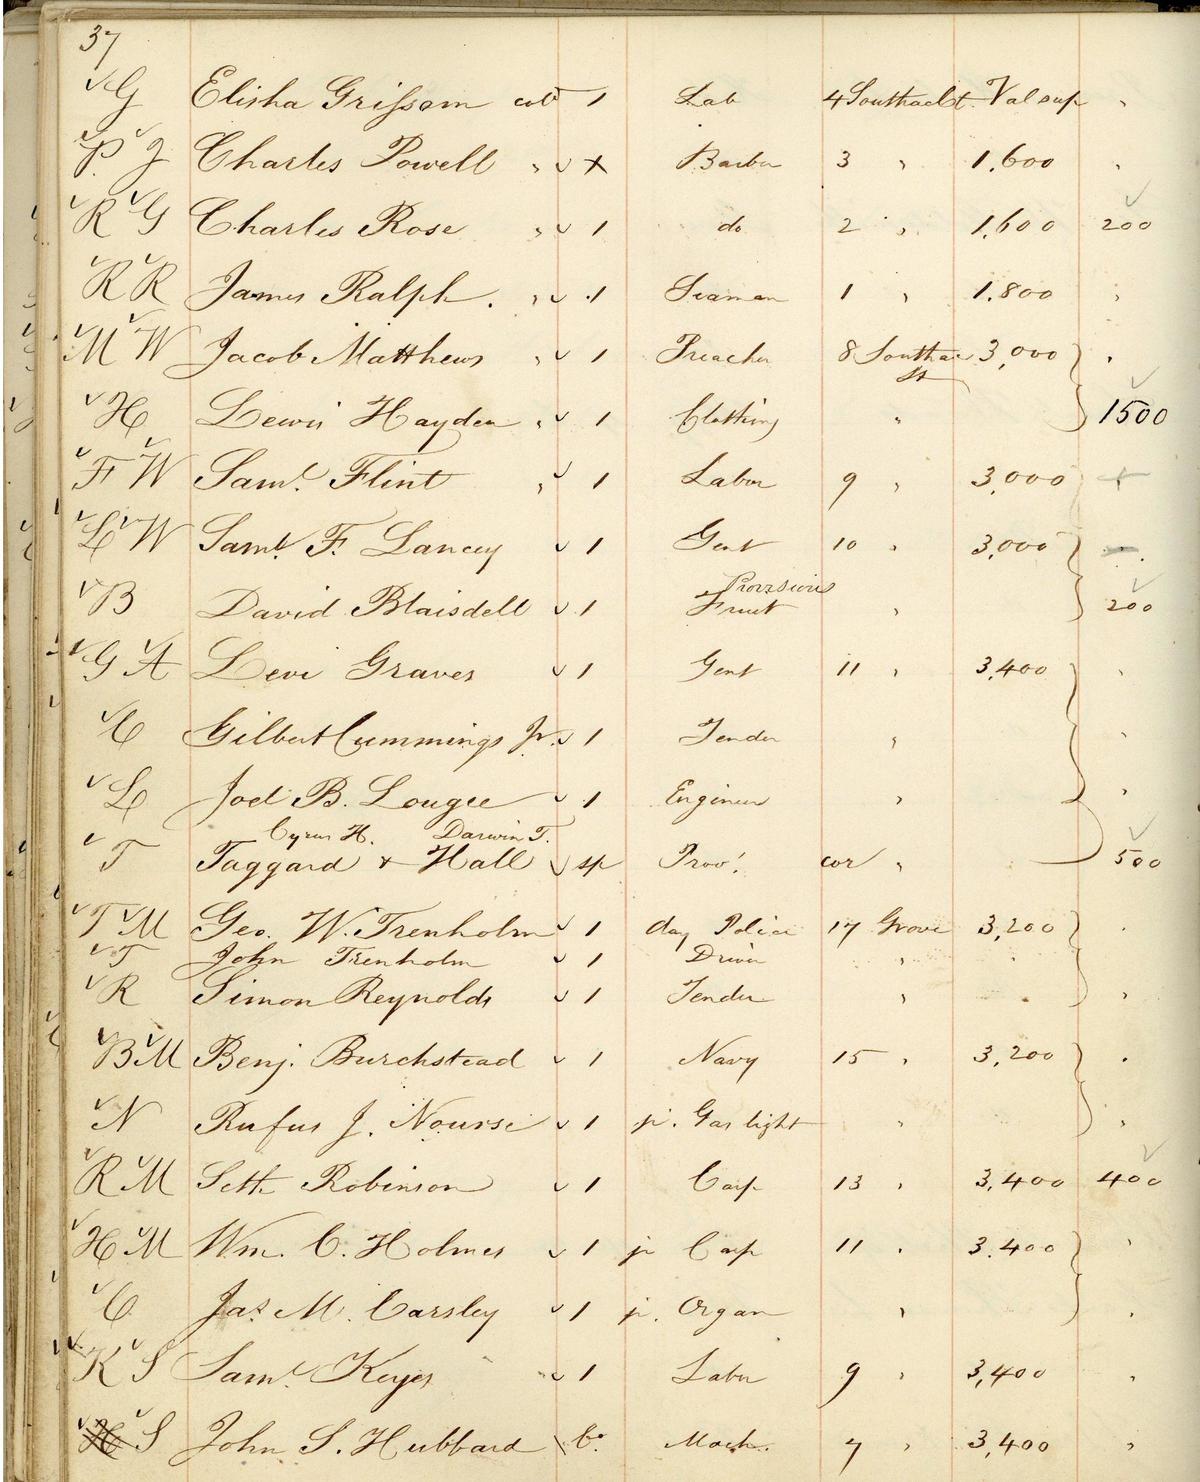 37
G Elisha Grissom col 1 Lab 4 Southac St. Val sup "
P J Charles Powell " x Barber 3 " 1,600 "
R G Charles Rose " 1 do 2 " 1,600 200
R R James Ralph. " 1 Seaman 1 " 1,800 "
M W Jacob Matthews " 1 Preacher 8 Southac St 3,000 "
H Lewis Hayden " 1 Clothing " 1500
F W Saml. Flint " 1 Labor 9 " 3,000
L W Saml. F. Lancey 1 Gent 10 " 3,000
Provisions
B David Blaisdell 1 Fruit " 200
G A Levi Graves 1 Gent 11 " 3,400 "
C Gilbert Cummings Jr. 1 Tender " "
L Joel B. Lougee 1 Engineer " "
Cyrus H. Darwin T.
T Taggard + Hall sp Prov. cor " 500
T M Geo. W. Trenholm 1 day Police 17 Grove 3,200 "
T John Trenholm 1 Driver "
R Simon Reynolds 1 Tender " "
B M Benj. Burchstead 1 Navy 15 " 3,200 "
N Rufus J. Nourse 1 jr. Gas light " "
R M Seth Robinson 1 Carp 13 " 3,400 400
H M Wm. C. Holmes 1 jr Carp 11 " 3,400 "
C Jas. M. Carsley 1 jr. Organ " "
K S Saml. Keyes 1 Labor 9 " 3,400 "
H S John S. Hubbard Co Mach. 7 " 3,400 "